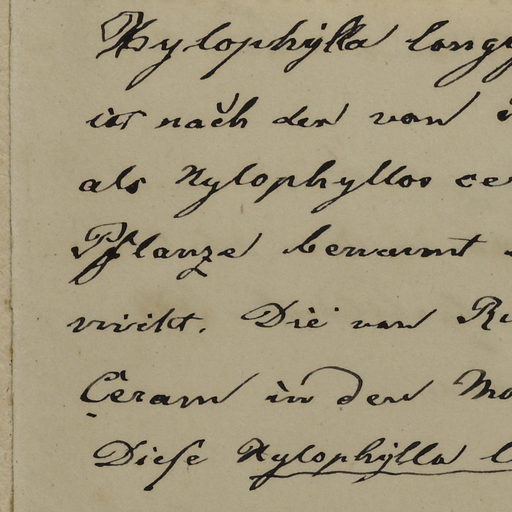 Xylophylla long
ist nach der von
als Xylophyllos ce
Pflanze benannt
wirkt. Die von Ru
Ceram in den Mo
Diese Xylophylla l